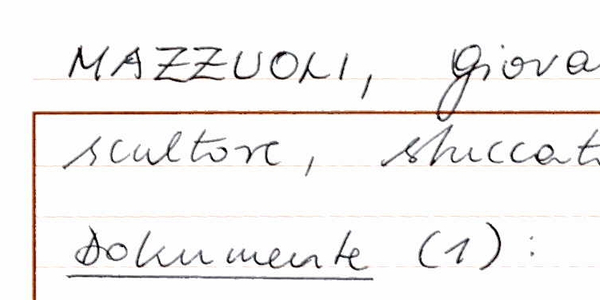 MAZZUOLI, Giova
scultore, stuccat
Dokumente (1):